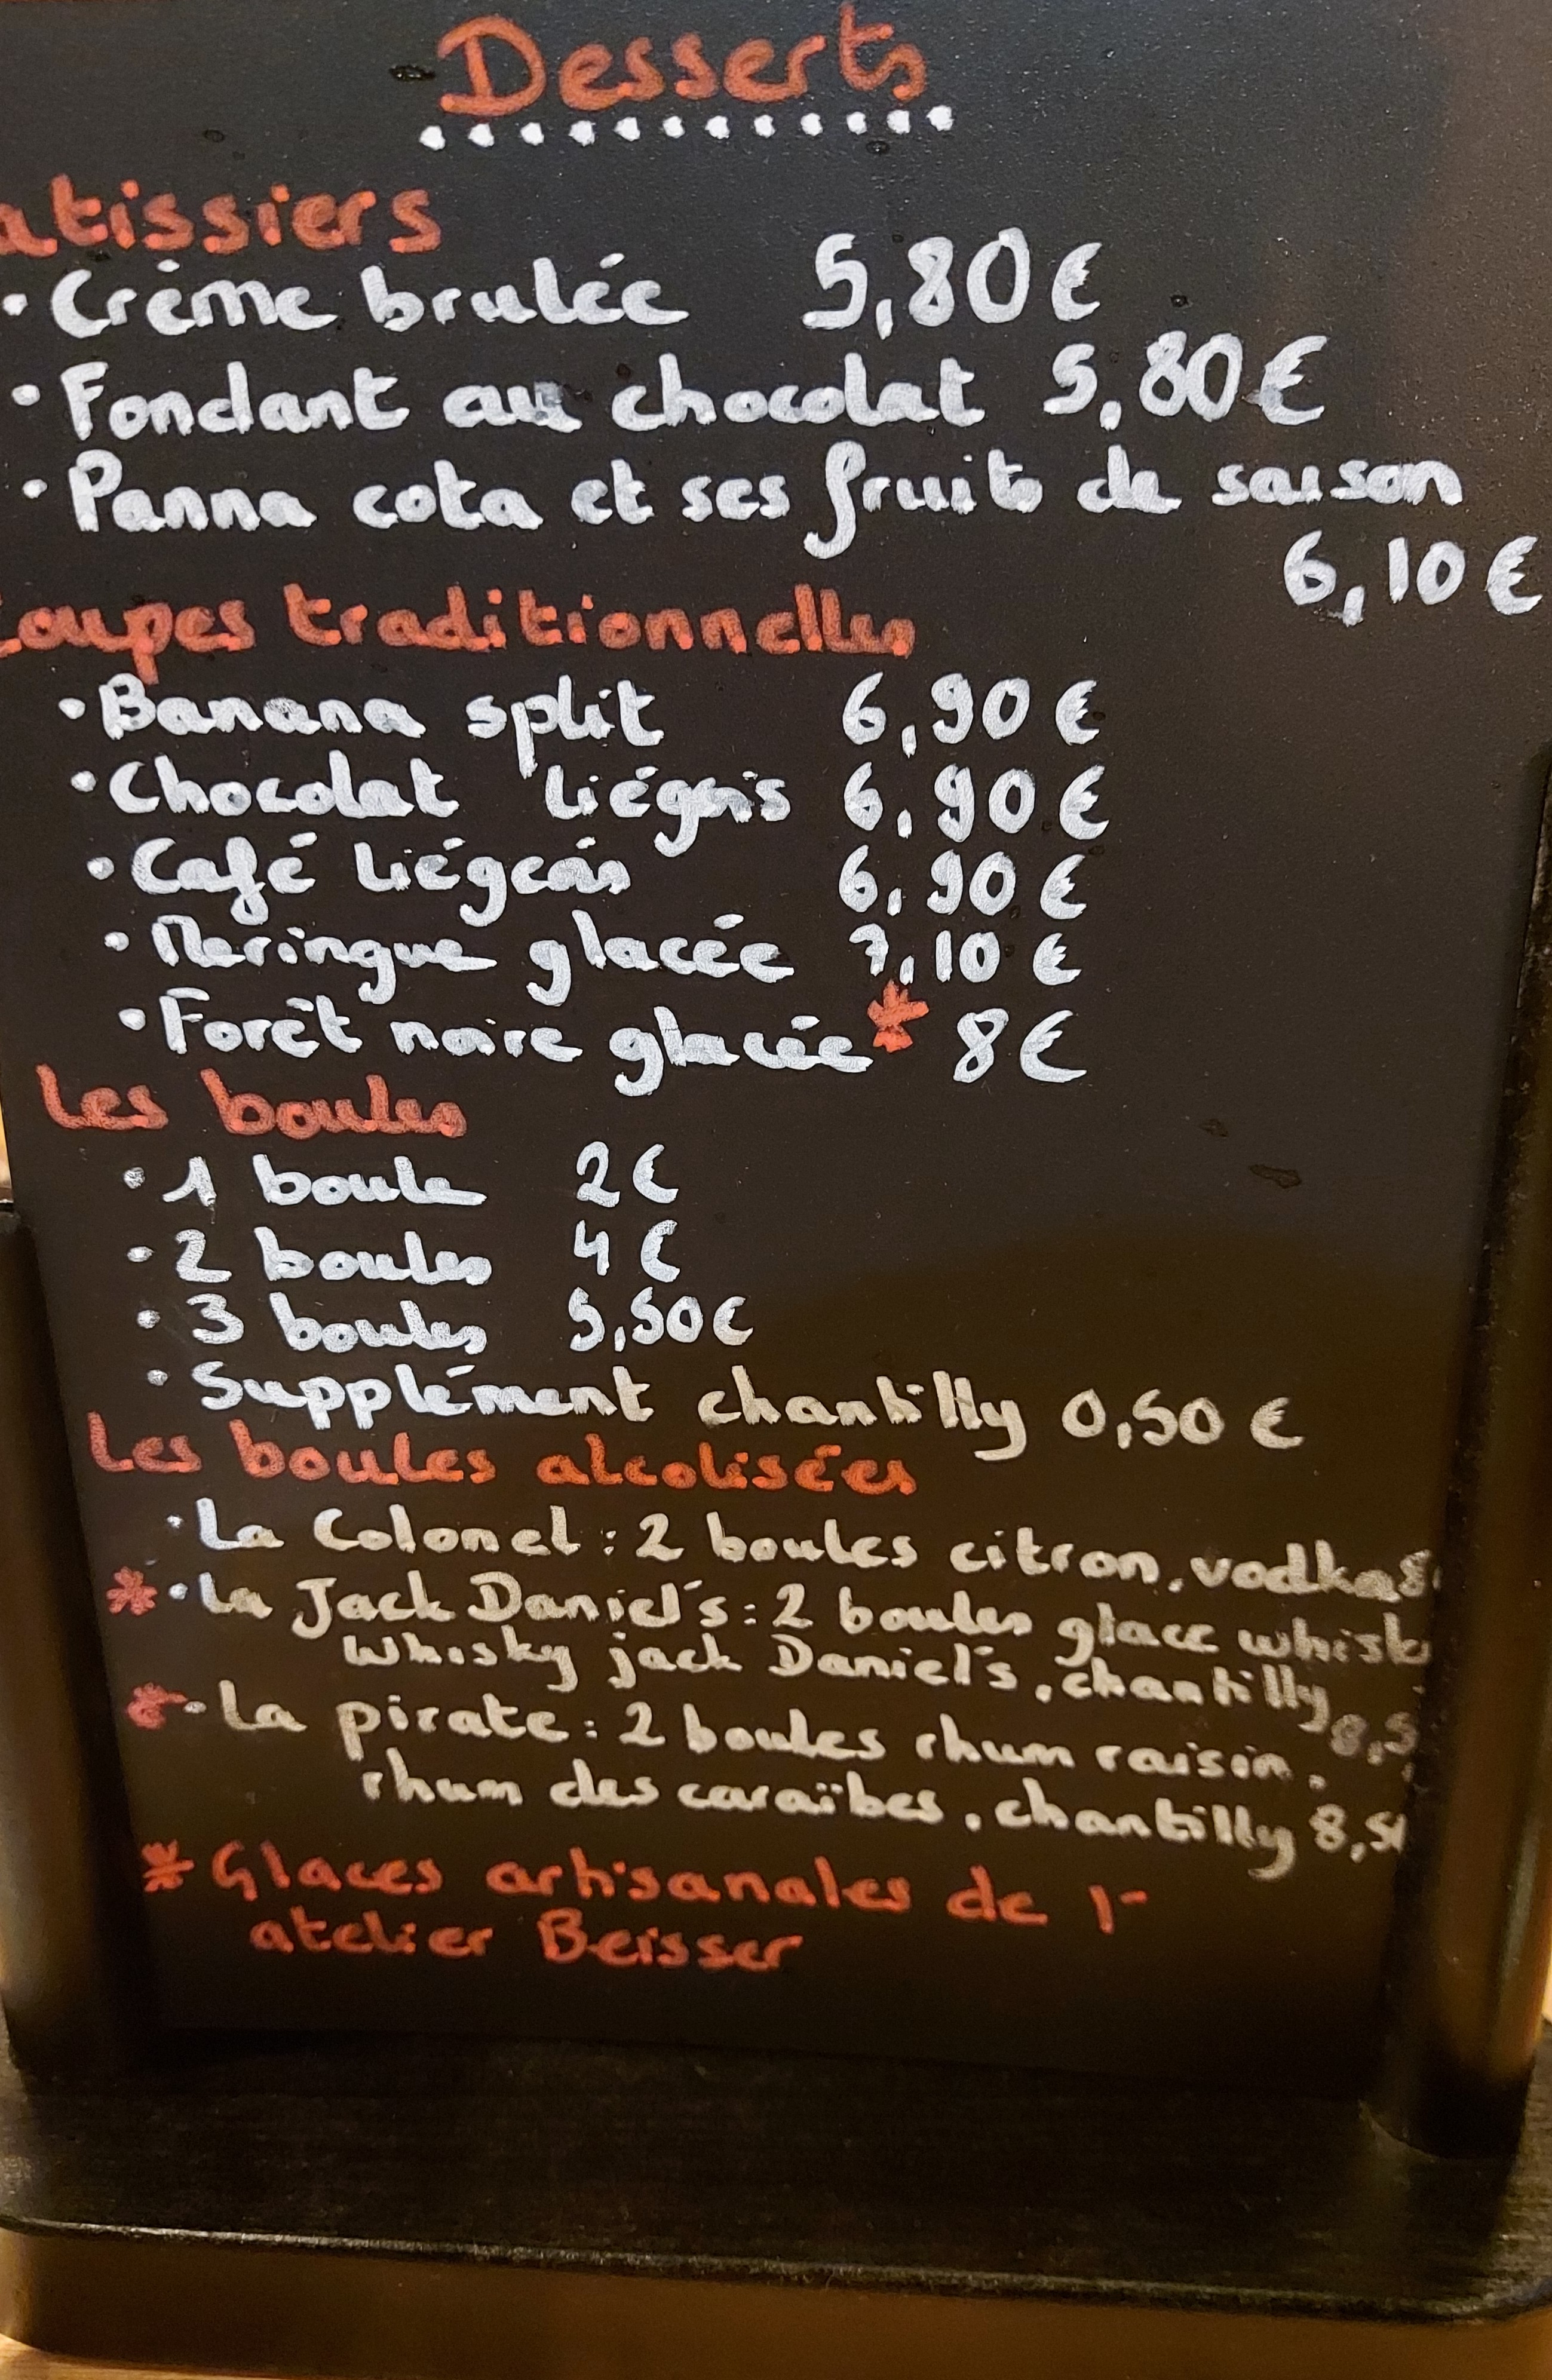 Desserts
atissiers
• Crème brulée 5,80 €
• Fondant au chocolat 5,80 €
• Panna cota et ses fruits de saison
6,10 €
Coupes traditionnelles
• Banana split 6,90 €
• Chocolat liégeois 6,90 €
• Café liégeois 6,90 €
• Meringue glacée 7,10 €
• Forêt noire glacée* 8 €
Les boules
• 1 boule 2 €
• 2 boules 4 €
• 3 boules 5,50 €
• Supplément chantilly 0,50 €
Les boules alcolisées
• La Colonel : 2 boules citron, vodka 8
* • La Jack Daniel's : 2 boules glace whisk
Whisky jack Daniel's, chantilly 8,5
* • La pirate : 2 boules rhum raisin,
rhum des caraïbes, chantilly 8,5
* Glaces artisanales de l'
atelier Beisser